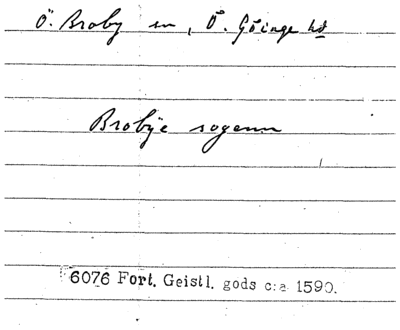 Ö. Broby sn, Ö. Göinge hd
Brobye sogenn
6076 Fort. Geistl. gods c:a 1590.